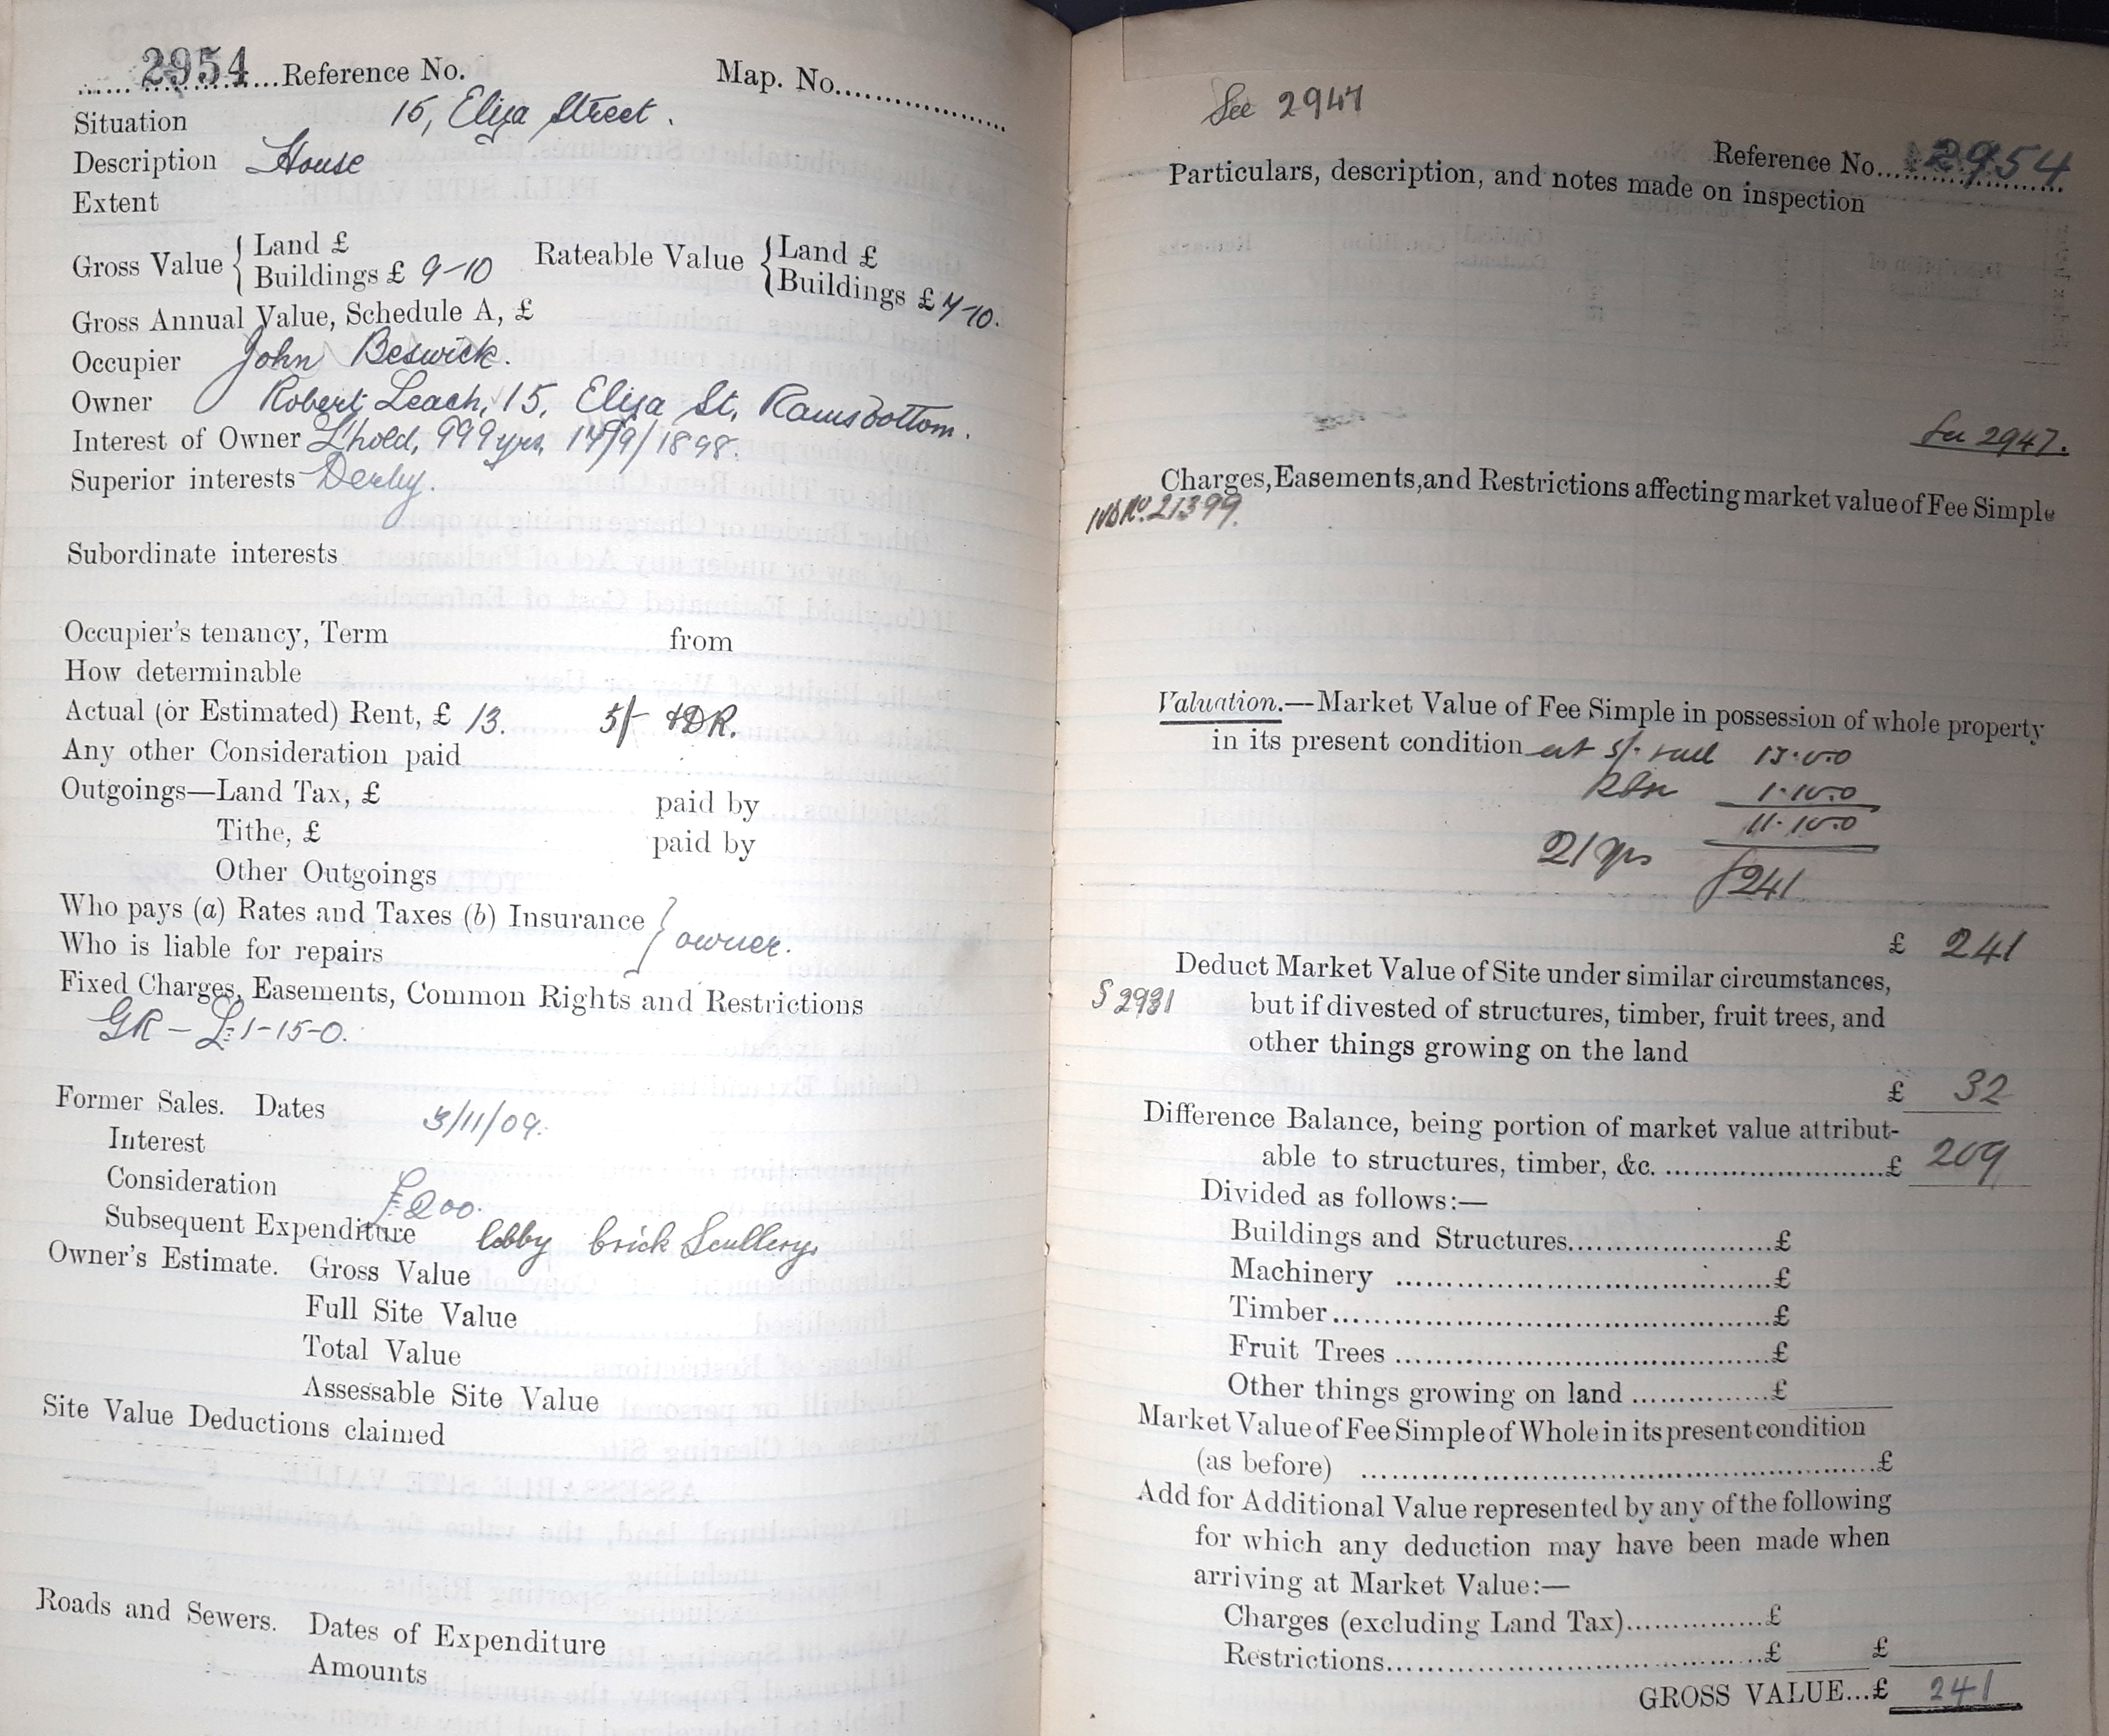 2954 Reference No. Map. No.
Situation 15, Eliza Street.
Description House
Extent
Gross Value { Land £
Buildings £ 9-10
Rateable Value { Land £
Buildings £ 7-10.
Gross Annual Value, Schedule A, £
Occupier John Beswick.
Owner Robert Leach, 15, Eliza St, Ramsbottom.
Interest of Owner L'hold, 999 yrs, 17/9/1898.
Superior interests Derby.
Subordinate interests
Occupier's tenancy, Term from
How determinable
Actual (or Estimated) Rent, £ 13. 5/- &DR.
Any other Consideration paid
Outgoings—Land Tax, £ paid by
Tithe, £ paid by
Other Outgoings
Who pays (a) Rates and Taxes (b) Insurance
Who is liable for repairs } owner.
Fixed Charges, Easements, Common Rights and Restrictions
GR - £1-15-0.
Former Sales. Dates 3/11/09.
Interest
Consideration £200.
Subsequent Expenditure lobby brick Scullery
Owner's Estimate. Gross Value
Full Site Value
Total Value
Assessable Site Value
Site Value Deductions claimed
Roads and Sewers. Dates of Expenditure
Amounts
See 2947
Reference No. 2954
Particulars, description, and notes made on inspection
See 2947.
Charges, Easements, and Restrictions affecting market value of Fee Simple
No. 21399.
Valuation.—Market Value of Fee Simple in possession of whole property
in its present condition at 5/- 13.0.0
1.10.0
11.10.0
21 yrs £241
£ 241
Deduct Market Value of Site under similar circumstances,
S 2931 but if divested of structures, timber, fruit trees, and
other things growing on the land
£ 32
Difference Balance, being portion of market value attribut-
able to structures, timber, &c. £ 209
Divided as follows:—
Buildings and Structures £
Machinery £
Timber £
Fruit Trees £
Other things growing on land £
Market Value of Fee Simple of Whole in its present condition
(as before) £
Add for Additional Value represented by any of the following
for which any deduction may have been made when
arriving at Market Value:—
Charges (excluding Land Tax) £
Restrictions £ £
GROSS VALUE...£ 241